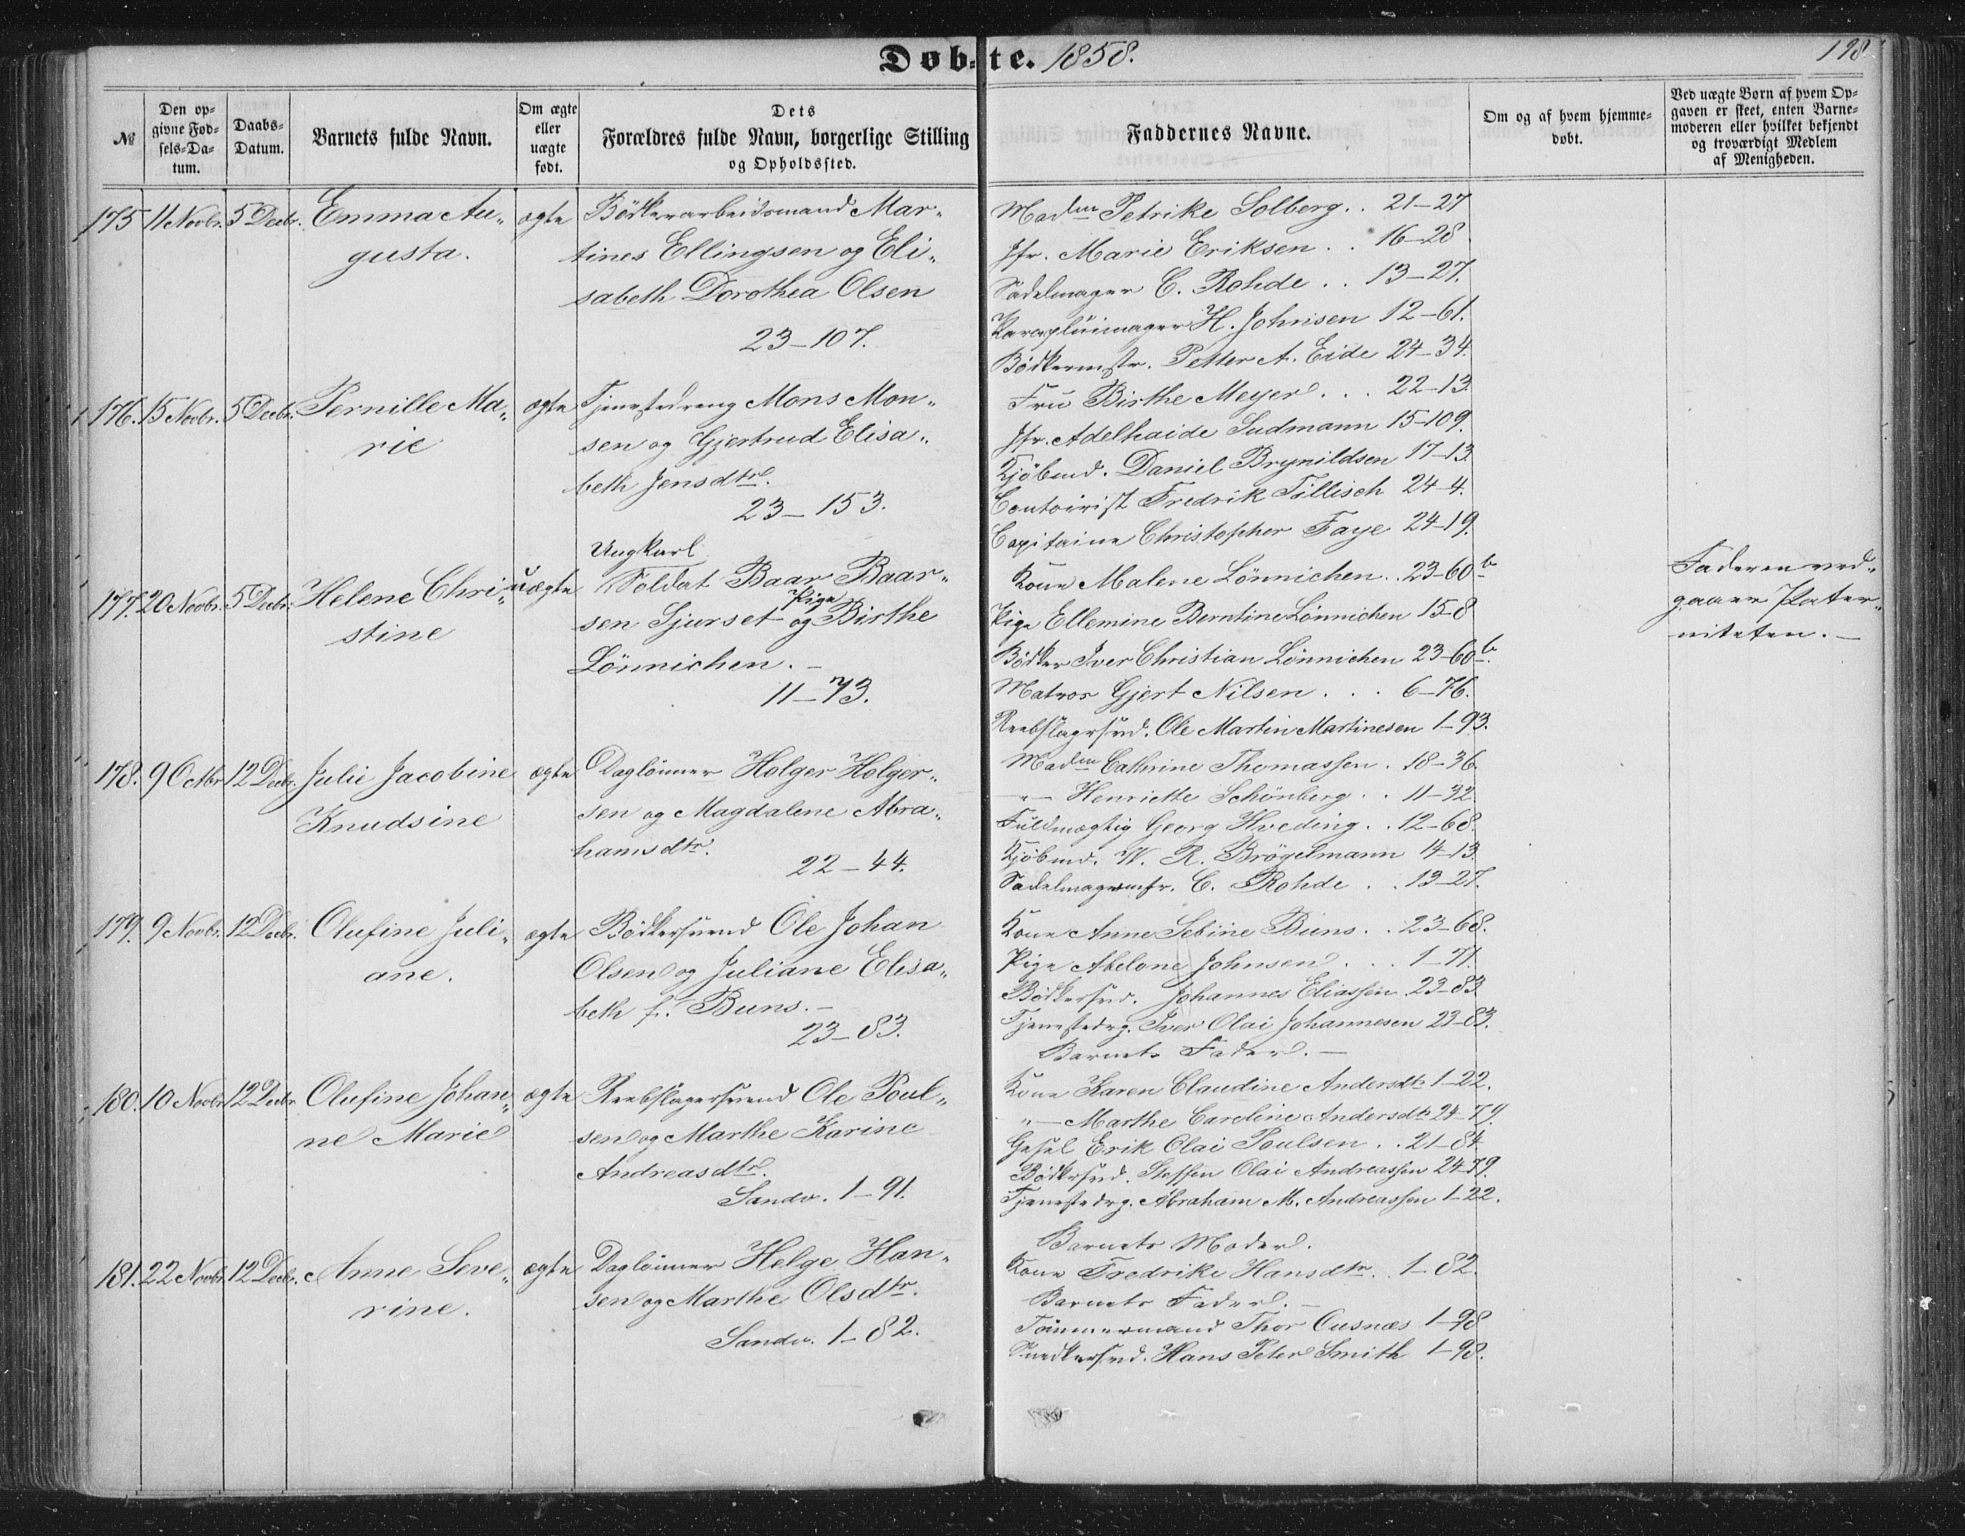 Døbte. 1858.
198
№
Den opgivne Fødsels-Datum.
Daabs-Datum.
Barnets fulde Navn.
Om ægte eller uægte født.
Dets Forældres fulde Navn, borgerlige Stilling og Opholdssted.
Faddernes Navne.
Om og af hvem hjemmedøbt.
Ved uægte Børn af hvem Opgaven er skeet, enten Barnemoderen eller hvilket bekjendt og troværdigt Medlem af Menigheden.
175 11 Novbr. 5 Decbr. Emma Au-
gusta.
ægte
Bødkerarbeidsmand Mar-
tines Ellingsen og Eli-
sabeth Dorothea Olsen
23-107.
Madm Petrike Solberg.. 21-27
Jfr. Marie Eriksen.. 16-28
Sadelmager C. Rohde.. 13-27.
Paraplüimager H. Johnsen 12-61.
Bødkermstr. Petter A. Eide 24-34.
176. 15 Novbr. 5 Decbr. Pernille Ma-
rie
ægte
Tjenestedreng Mons Mon-
sen og Gjertrud Elisa-
beth Jensdtr.
23-153.
Fru Birthe Meyer... 22-13
Jfr. Adelhaide Sudmann 15-109.
Kjøbmd. Daniel Brynildsen 17-13
Contoirist Fredrik Tillisch 24-4.
Capitaine Christopher Faye 24-19.
177. 20 Novbr. 5 Decbr. Helene Chri-
stine
uægte
Ungkarl
Soldat Baar Baar-
sen Sjurset og Pige Birthe
Lönnichen.-
11-73.
Kone Malene Lönnichen.. 23-60b
Pige Ellemine Berntine Lönnichen 15-8
Bödker Iver Christian Lönnichen 23-60b.
Matros Gjert Nilsen... 6-76.
Reebslagersvd. Ole Martin Martinesen 1-93.
Faderen ved-
gaaer Pater-
niteten.-
178. 9 Octbr 12 Decbr. Julie Jacobine
Knudsine
ægte
Daglönner Holger Holger-
sen og Magdalene Abra-
hamsdtr.
22-44.
Madm Cathrine Thomassen. 18-36.
"- Henriette Schönberg.. 11-32
Fuldmægtig Georg Hveding.. 12-68.
Kjöbmd. W. R. Brögelmann 14-13.
Sadelmagermstr. C. Rohde.. 13-27.
179. 9 Novbr. 12 Decbr. Olufine Juli-
ane.
ægte
Bödkersvend Ole Johan
Olsen og Juliane Elisa-
beth f. Buns.-
23-83.
Kone Anne Sebine Buns.. 23-68.
Pige Abelone Johnsen... 1-71.
Bödkersvd. Johannes Eliassen 23-83
Tjenestedrg. Iver Olai Johannesen 23-83.
Barnets Fader.-
180. 10 Novbr 12 Decbr Olufine Johan-
ne Marie
ægte
Reebslagersvend Ole Poul-
sen og Marthe Karine
Andreasdtr.
Sandv. 1-91.
Kone Karen Claudine Andersdtr 1-22.
"- Marthe Caroline Andersdtr 24-79.
Gesel Erik Olai Poulsen.. 21-84
Bödkersvd. Steffen Olai Andreassen 24-79.
Tjenestedrg. Abraham M. Andreassen 1-22.
181. 22 Novbr. 12 Decbr. Anne Seve-
rine.
ægte
Daglönner Helge Han-
sen og Marthe Olsdtr.
Sandv. 1-82.
Barnets Moder.
Kone Fredrike Hansdtr.. 1-82.
Barnets Fader.-
Tömmermand Thor Qusnæs 1-98
Snedkersvd. Hans Peter Smith 1-98.